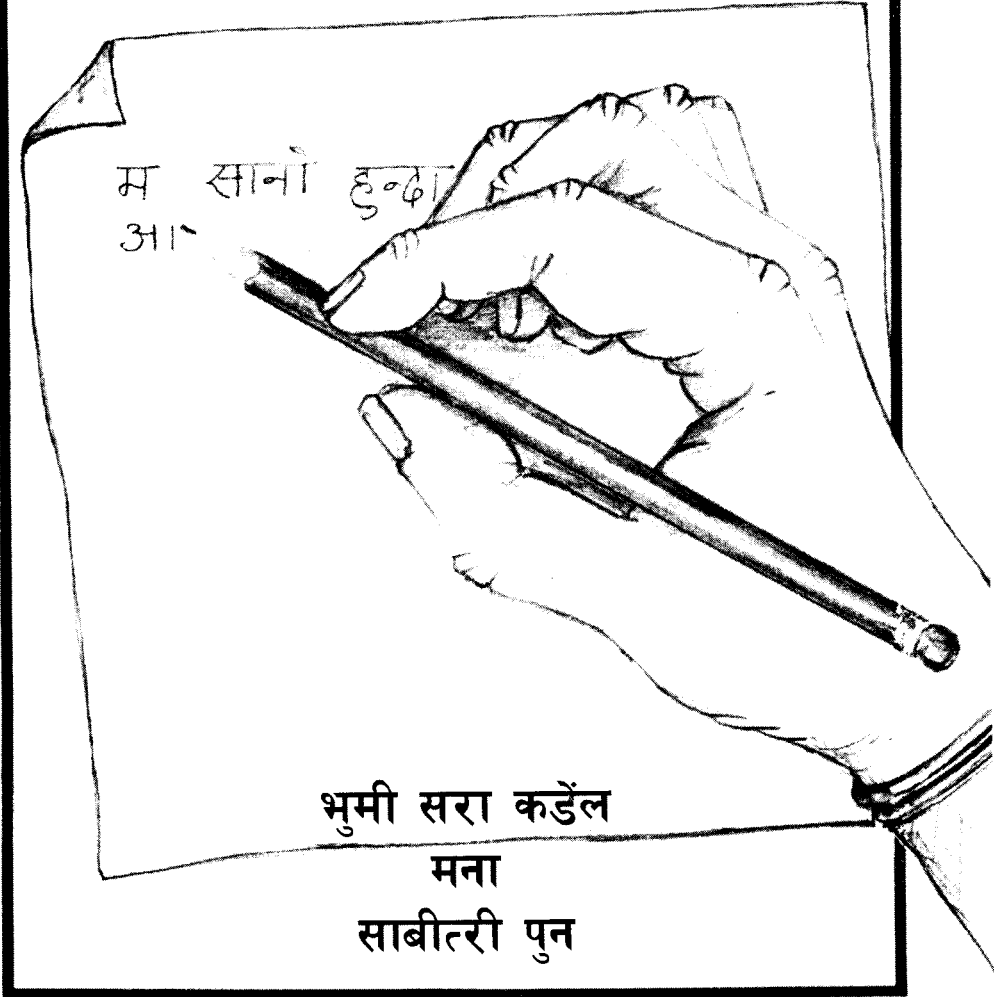 म सानो हुन्दा
आ
भुमी सरा कडेंल
मना
साबीत्री पुन